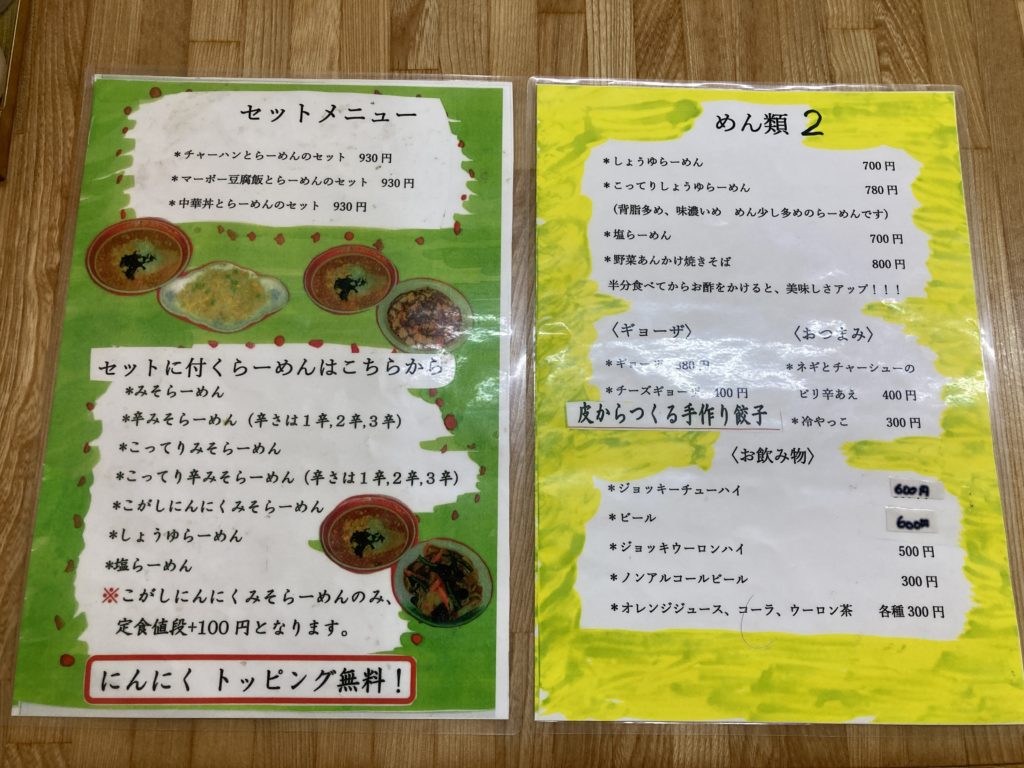 セットメニュー
*チャーハンとらーめんのセット 930円
*マーボー豆腐飯とらーめんのセット 930円
*中華丼とらーめんのセット 930円
セットに付くらーめんはこちらから
*みそらーめん
*辛みそらーめん（辛さは１辛,２辛,３辛）
*こってりみそらーめん
*こってり辛みそらーめん（辛さは１辛,２辛,３辛）
*こがしにんにくみそらーめん
*しょうゆらーめん
*塩らーめん
※こがしにんにくみそらーめんのみ、
定食値段+100円となります。
にんにく トッピング無料！
めん類 2
*しょうゆらーめん 700円
*こってりしょうゆらーめん 780円
（背脂多め、味濃いめ めん少し多めのらーめんです）
*塩らーめん 700円
*野菜あんかけ焼きそば 800円
半分食べてからお酢をかけると、美味しさアップ！！！
〈ギョーザ〉
*ギョーザ 380円
*チーズギョーザ 400円
皮からつくる手作り餃子
〈おつまみ〉
*ネギとチャーシューの
ピリ辛あえ 400円
*冷やっこ 300円
〈お飲み物〉
*ジョッキーチューハイ 600円
*ビール 600円
*ジョッキウーロンハイ 500円
*ノンアルコールビール 300円
*オレンジジュース、コーラ、ウーロン茶 各種300円